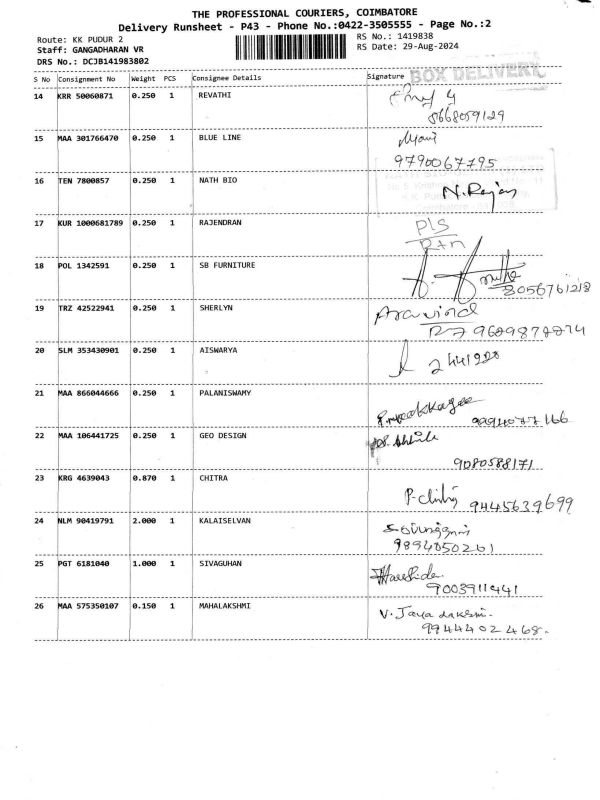 THE PROFESSIONAL COURIERS, COIMBATORE
Delivery Runsheet - P43 - Phone No.:0422-3505555 - Page No.:2
Route: KK PUDUR 2
RS No.: 1419838
Staff: GANGADHARAN VR
RS Date: 29-Aug-2024
DRS No.: DCJB141983802
S No Consignment No Weight PCS Consignee Details Signature
BOX DELIVERY
14 KRR 50060871 0.250 1 REVATHI
8668059129
15 MAA 301766470 0.250 1 BLUE LINE
9790067795
16 TEN 7800857 0.250 1 NATH BIO
N.Rajan
17 KUR 1000681789 0.250 1 RAJENDRAN
Pls
Rtn
18 POL 1342591 0.250 1 SB FURNITURE
8056761218
19 TRZ 42522941 0.250 1 SHERLYN
Aravind
20 SLM 353430901 0.250 1 AISWARYA
21 MAA 866044666 0.250 1 PALANISWAMY
22 MAA 106441725 0.250 1 GEO DESIGN
9080588171
23 KRG 4639043 0.870 1 CHITRA
9445639699
24 NLM 90419791 2.000 1 KALAISELVAN
9894050261
25 PGT 6181040 1.000 1 SIVAGUHAN
9003911441
26 MAA 575350107 0.150 1 MAHALAKSHMI
V. Jaya
9944402468.